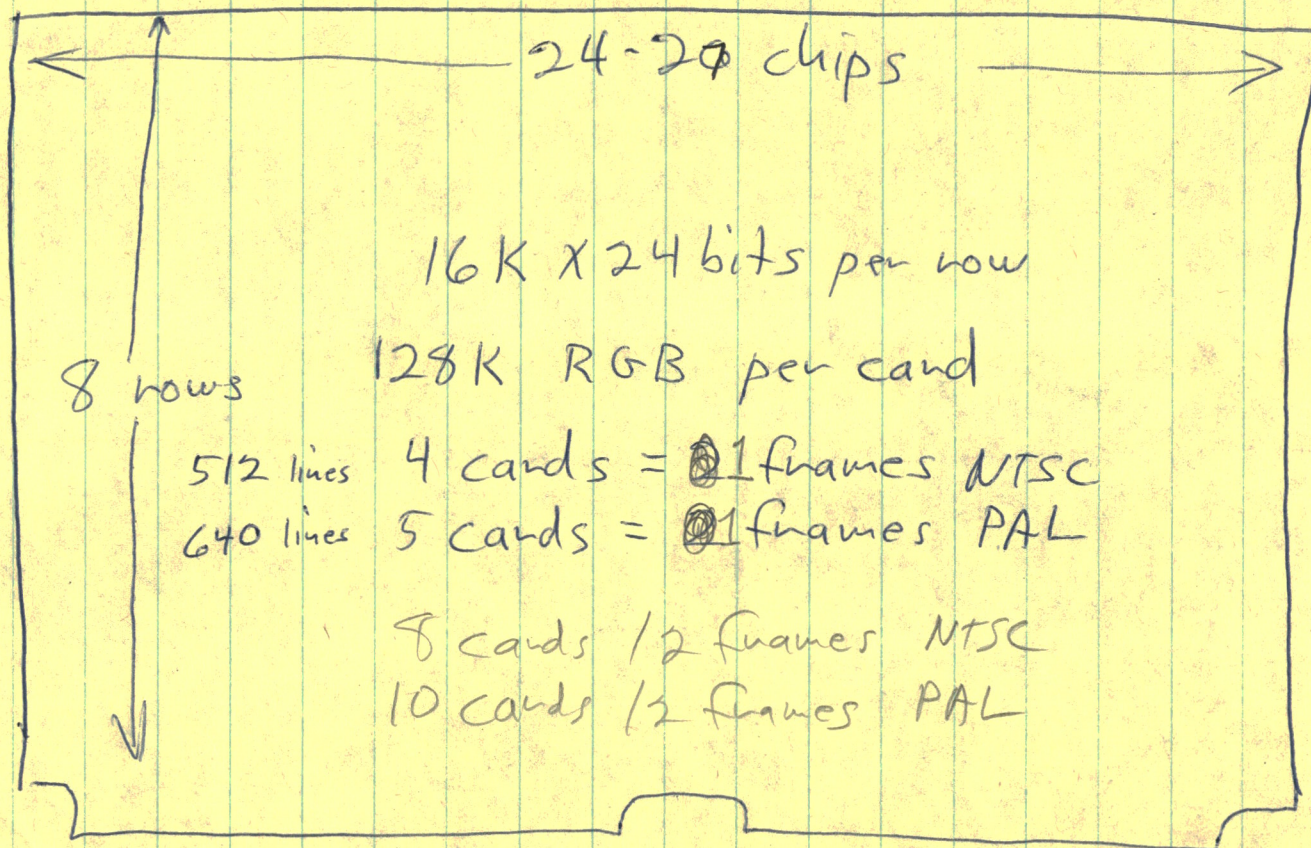 24-20 chips
16K X 24 bits per row
128K RGB per card
8 rows
512 lines 4 cards = 1 frames NTSC
640 lines 5 cards = 1 frames PAL
8 cards / 2 frames NTSC
10 cards / 2 frames PAL